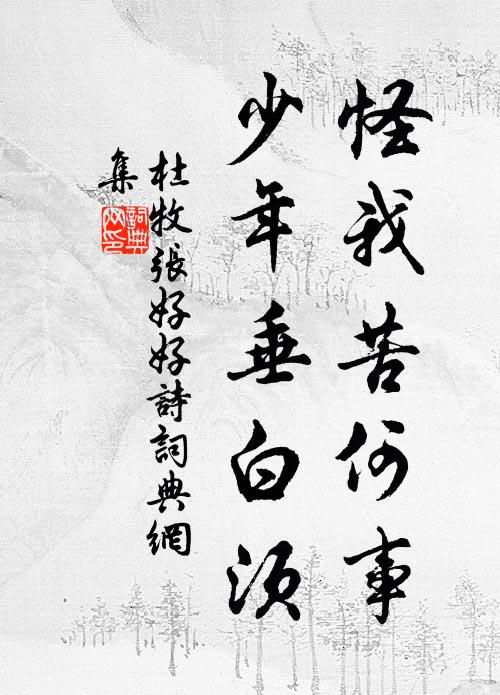 怪我苦何事
少年垂白須
杜牧張好好詩詞典網
集
詞典
网印